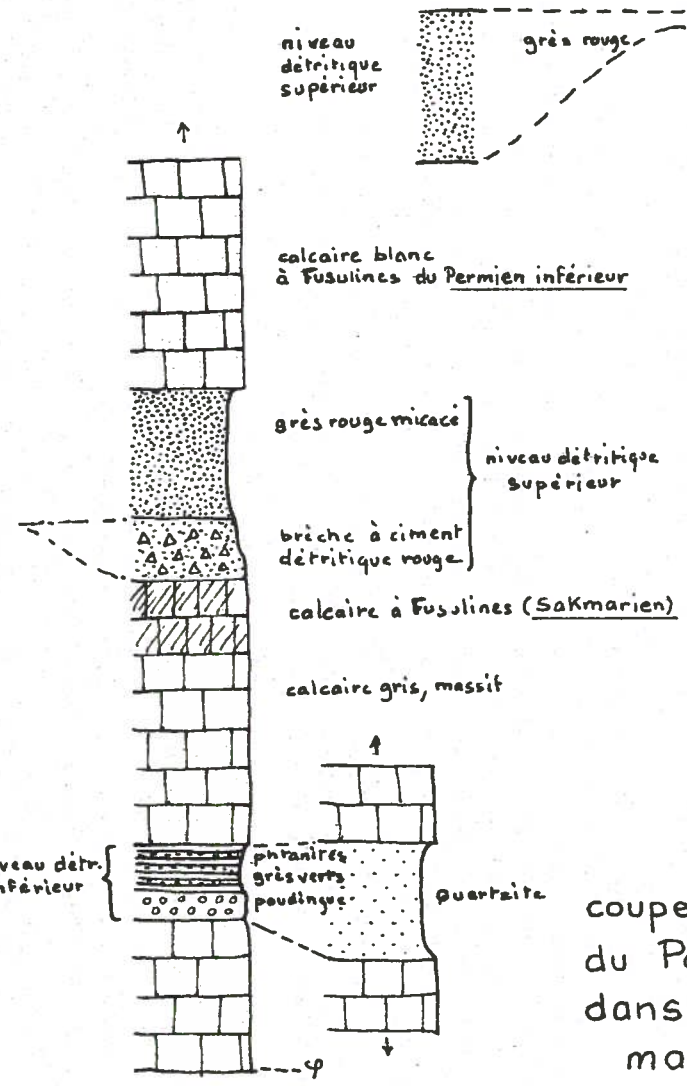 niveau
détritique
supérieur
grès rouge
calcaire blanc
à Fusulines du Permien inférieur
grès rouge micacé
niveau détritique
supérieur
brèche à ciment
détritique rouge
calcaire à Fusulines (Sakmarien)
calcaire gris, massif
veau détr.
nférieur
phtanites
grès verts
poudingue
quartzite
coupe
du Pa
dans
ma
φ